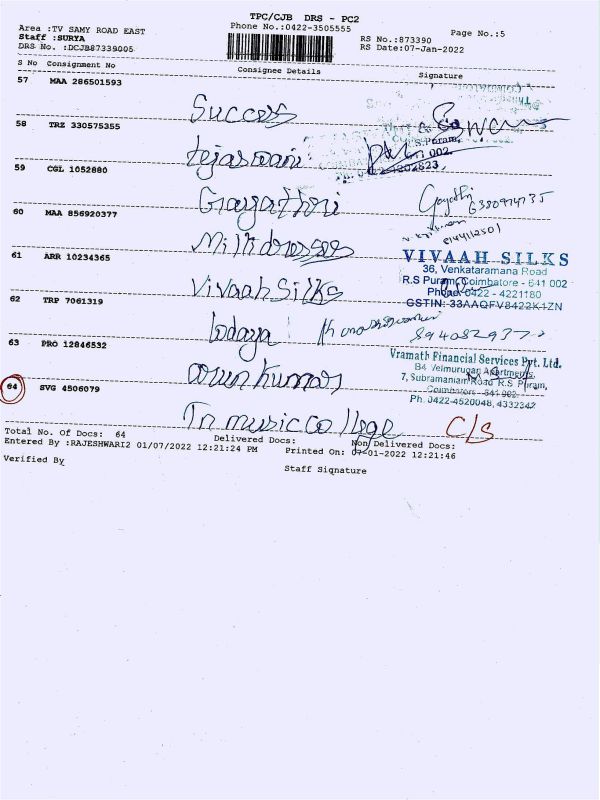 TPC/CJB DRS - PC2
Area :TV SAMY ROAD EAST
Phone No.:0422-3505555
Page No.:5
Staff :SURYA
RS No.:873390
DRS No. :DCJB87339005
RS Date:07-Jan-2022
S No Consignment No Consignee Details Signature
57 MAA 286501593
Success
58 TRZ 330575355
& Co
S.Puram,
002.
tejaswani
59 CGL 1052880
Gayathri
Gayathri
6380974735
60 MAA 856920377
Milkdresses
61 ARR 10234365
VIVAAH SILKS
36, Venkataramana Road
R.S Puram, Coimbatore - 641 002
Phone: 0422 - 4221180
GSTIN: 33AAQFV8422K1ZN
Vivaah Silks
62 TRP 7061319
lodaya
63 PRO 12846532
Vramath Financial Services Pvt. Ltd.
B4 Velmurugan Apartments,
7, Subramaniam Road R.S Puram,
Coimbatore - 641 002.
Ph. 0422-4520048, 4332342
arunkumar
64 SVG 4506079
Tn music College C/S
Total No. Of Docs: 64 Delivered Docs: Non Delivered Docs:
Entered By :RAJESHWARI2 01/07/2022 12:21:24 PM Printed On: 07-01-2022 12:21:46
Verified By
Staff Signature